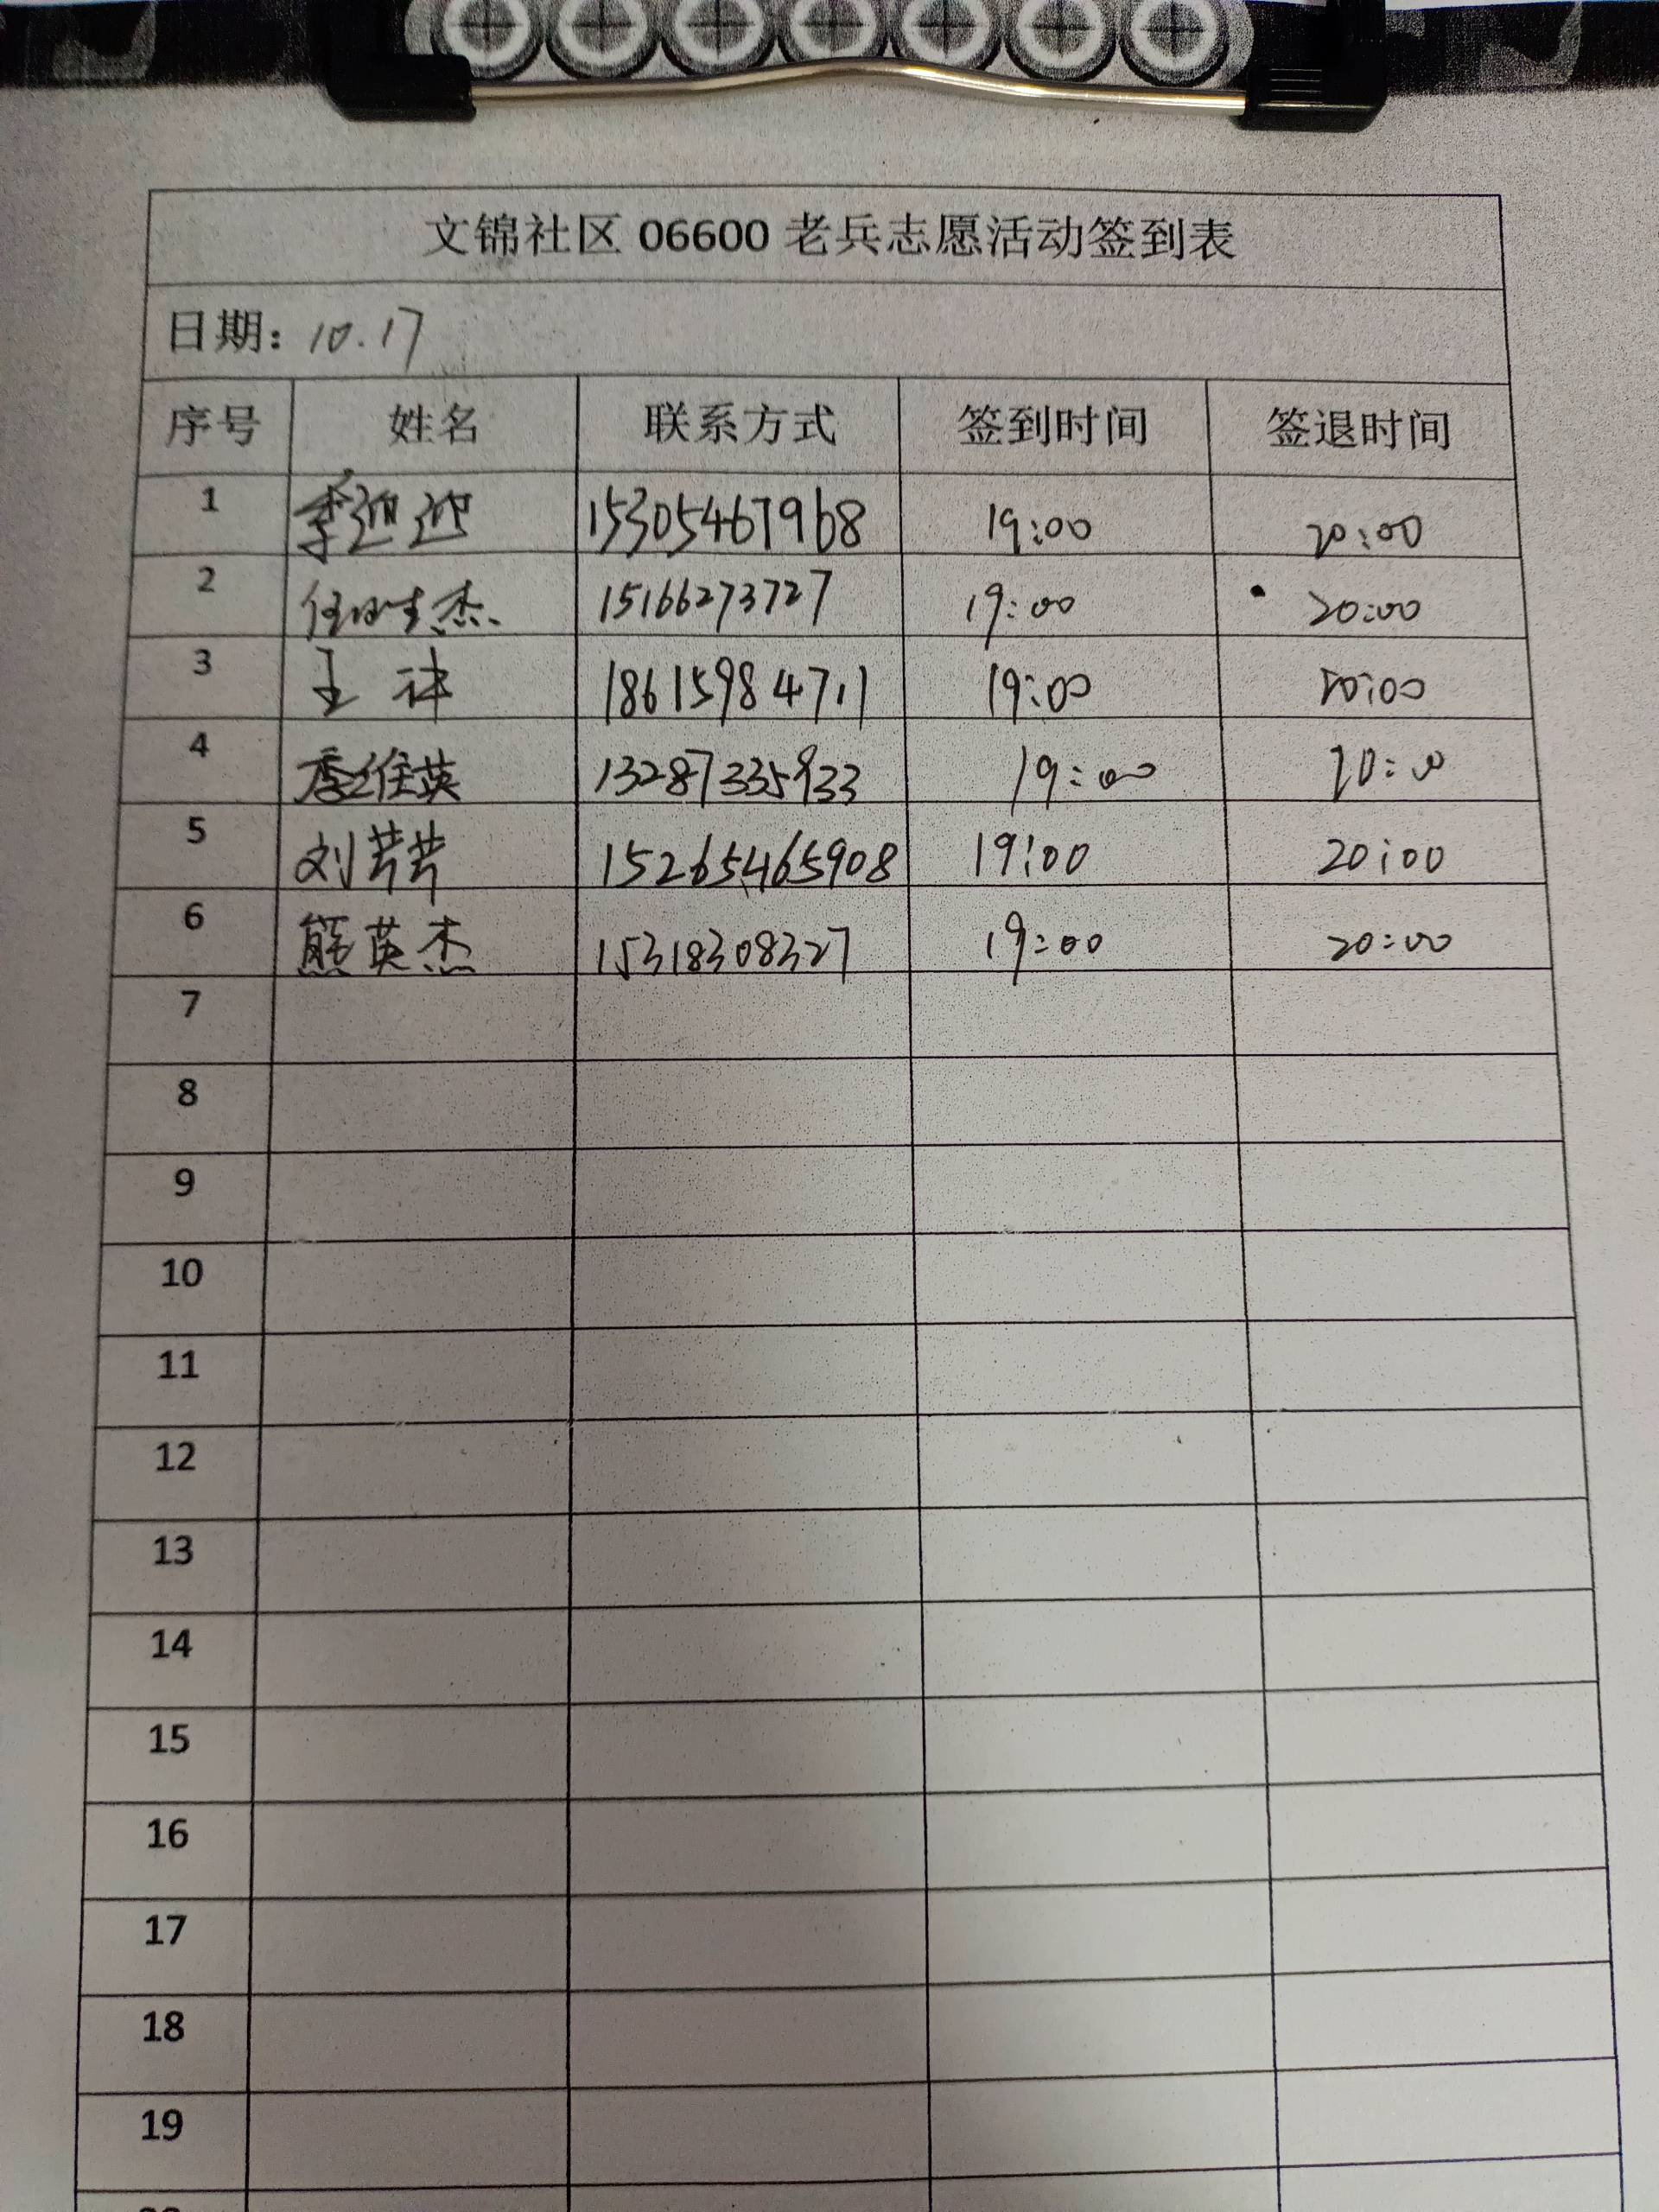 文锦社区 06600 老兵志愿活动签到表
日期: 10.17
序号 姓名 联系方式 签到时间 签退时间
1 季迎迎 15305467968 19:00 20:00
2 15166273727 19:00 20:00
3 王 祎 18615984711 19:00 20:00
4 季维英 13287335933 19:00 20:00
5 刘芹芹 15265465908 19:00 20:00
6 熊英杰 15318308327 19:00 20:00
7
8
9
10
11
12
13
14
15
16
17
18
19